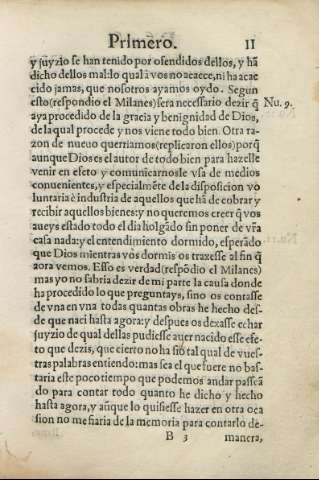 Primero. 11
y juyzio se han tenido por ofendidos dellos, y hã
dicho dellos mal: lo qual à vos no acaece, ni ha acae
cido jamas, que nosotros ayamos oydo. Segun
esto (respondio el Milanes) sera necessario dezir q̃ Nu. 9.
aya procedido de la gracia y benignidad de Dios,
de la qual procede y nos viene todo bien. Otra ra-
zon de nueuo querriamos (replicaron ellos) porq̃
aunque Dios es el autor de todo bien para hazelle
venir en efeto y comunicarnosle vsa de medios
conuenientes, y especialmẽte de la disposicion vo
luntaria è industria de aquellos que hã de cobrar y
recibir aquellos bienes: y no queremos creer q̃ vos
aueys estado todo el dia holgãdo sin poner de vr̃a
casa nada: y el entendimiento dormido, esperãdo
que Dios mientras vos dormis os traxesse al fin q̃
aora vemos. Esso es verdad (respõdio el Milanes)
mas yo no sabria dezir de mi parte la causa donde
ha procedido lo que preguntays, sino os contasse
de vna en vna todas quantas obras he hecho des-
de que naci hasta agora: y despues os dexasse echar
juyzio de qual dellas pudiesse auer nacido esse efe-
to que dezis, que cierto no ha sido tal qual de vues-
tras palabras entiendo: mas sea el que fuere no bas-
taria este poco tiempo que podemos andar passeã
do para contar todo quanto he dicho y hecho
hasta agora, y aũque lo quisiesse hazer en otra oca
sion no me fiaria de la memoria para contarlo de-
B 3 manera,